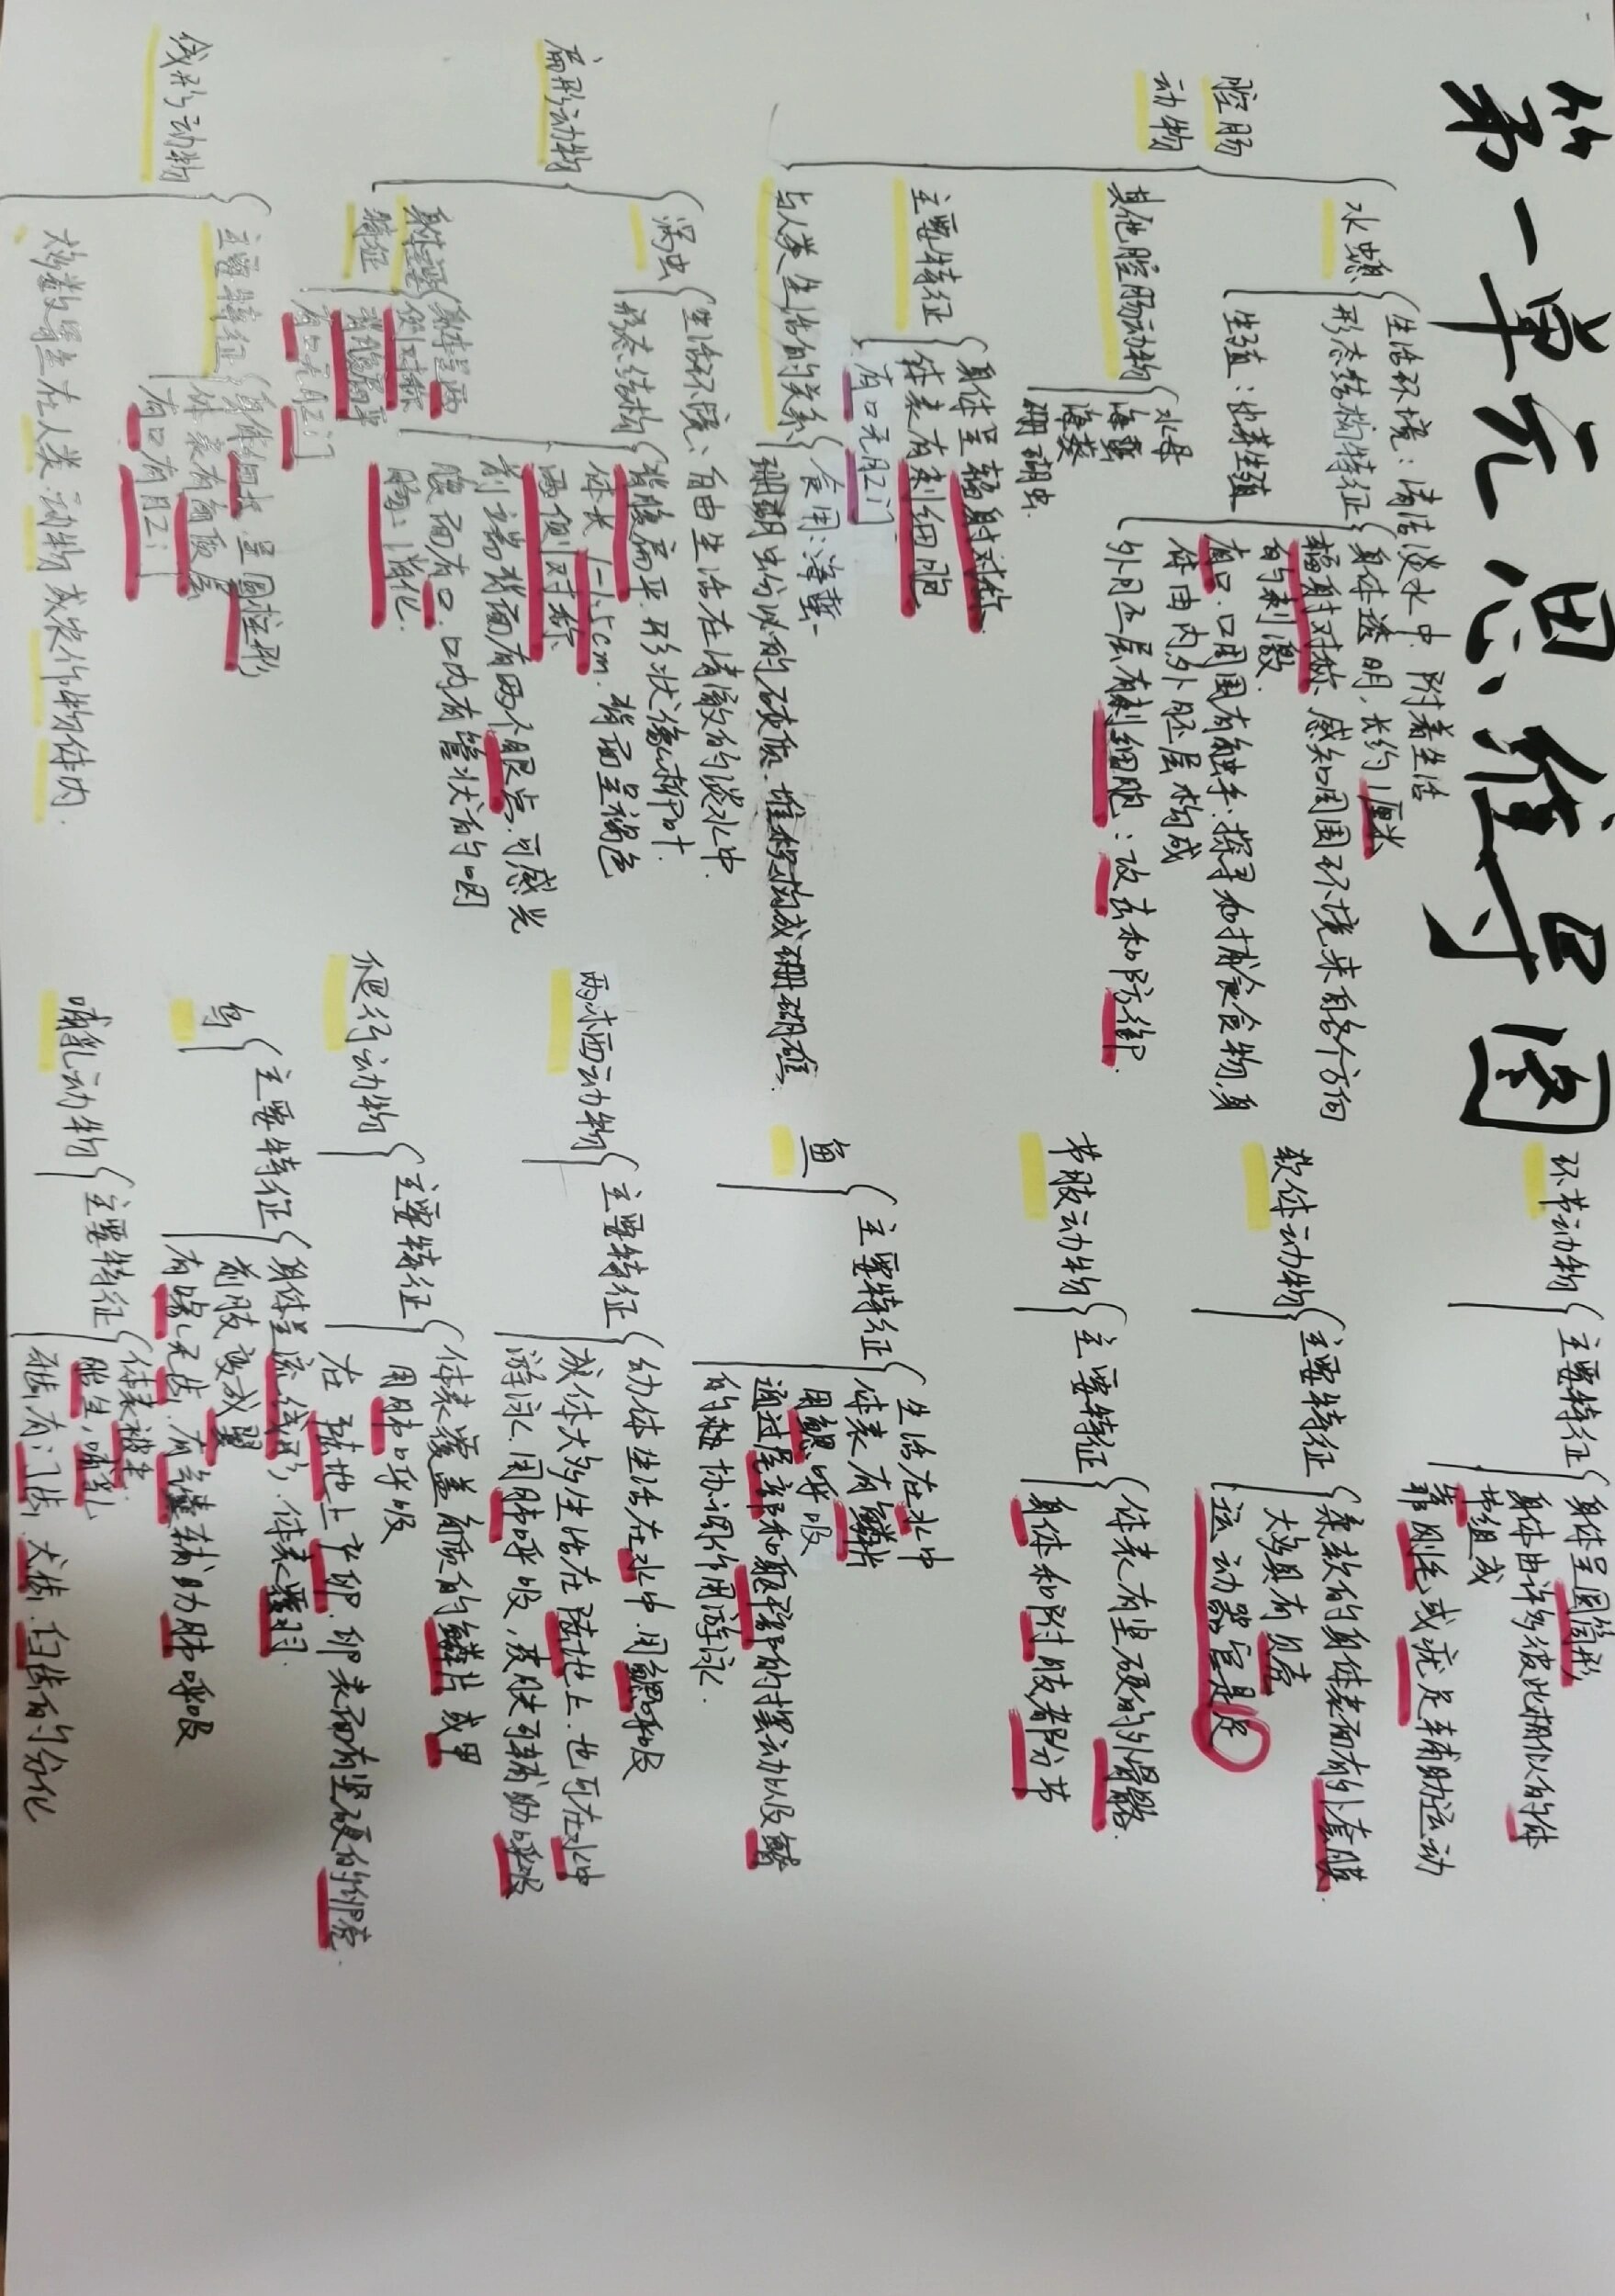 第一单元思维导图
腔肠
动物
水螅
生活环境：清洁淡水中.附着生活
形态结构特征
身体透明,长约1厘米
辐射对称.感知周围环境来自各个方向
的刺激.
有口.口周围有触手:探寻和捕食食物,身
体由内外胚层构成
外胚层有刺细胞：攻击和防御.
生殖：出芽生殖
其他腔肠动物
水母
海蜇
海葵
珊瑚虫.
主要特征
身体呈辐射对称.
体表有刺细胞
有口无肛门
与人类生活的关系
食用:海蜇.
珊瑚虫分泌的石灰质.堆积构成珊瑚礁.
扁形动物
涡虫
生活环境：自由生活在清澈的淡水中.
形态结构
背腹扁平.形状像柳叶.
体长1-1.5cm.背面呈褐色
两侧对称
前端背面有两个眼点.可感光
腹面有口.口内有管状的咽
肠：消化.
主要
特征
身体呈两
侧对称
背腹扁平
有口无肛门
线形动物
主要特征
身体细长.呈圆柱形
体表有角质层
有口有肛门
大多数寄生在人类.动物或农作物体内.
环节动物
主要特征
身体呈圆筒形
身体由许多彼此相似的体
节组成
靠刚毛或疣足辅助运动
软体动物
主要特征
柔软的身体表面有外套膜
大多具有贝壳
运动器官是足
节肢动物
主要特征
体表有坚硬的外骨骼.
身体和附肢都分节
鱼
主要特征
生活在水中
体表有鳞片
用鳃呼吸
通过尾部和躯干部的摆动以及鳍
的协调作用游泳.
两栖动物
主要特征
幼体生活在水中.用鳃呼吸
成体大多生活在陆地上.也可在水中
游泳.用肺呼吸,皮肤可辅助呼吸
爬行动物
主要特征
体表覆盖角质的鳞片或甲
用肺呼吸
在陆地上产卵.卵表面有坚硬的卵壳.
鸟
主要特征
身体呈流线形.体表覆羽.
前肢变成翼
有喙无齿.有气囊辅助肺呼吸
哺乳动物
主要特征
体表被毛
胎生,哺乳
牙齿有门齿.犬齿.臼齿的分化